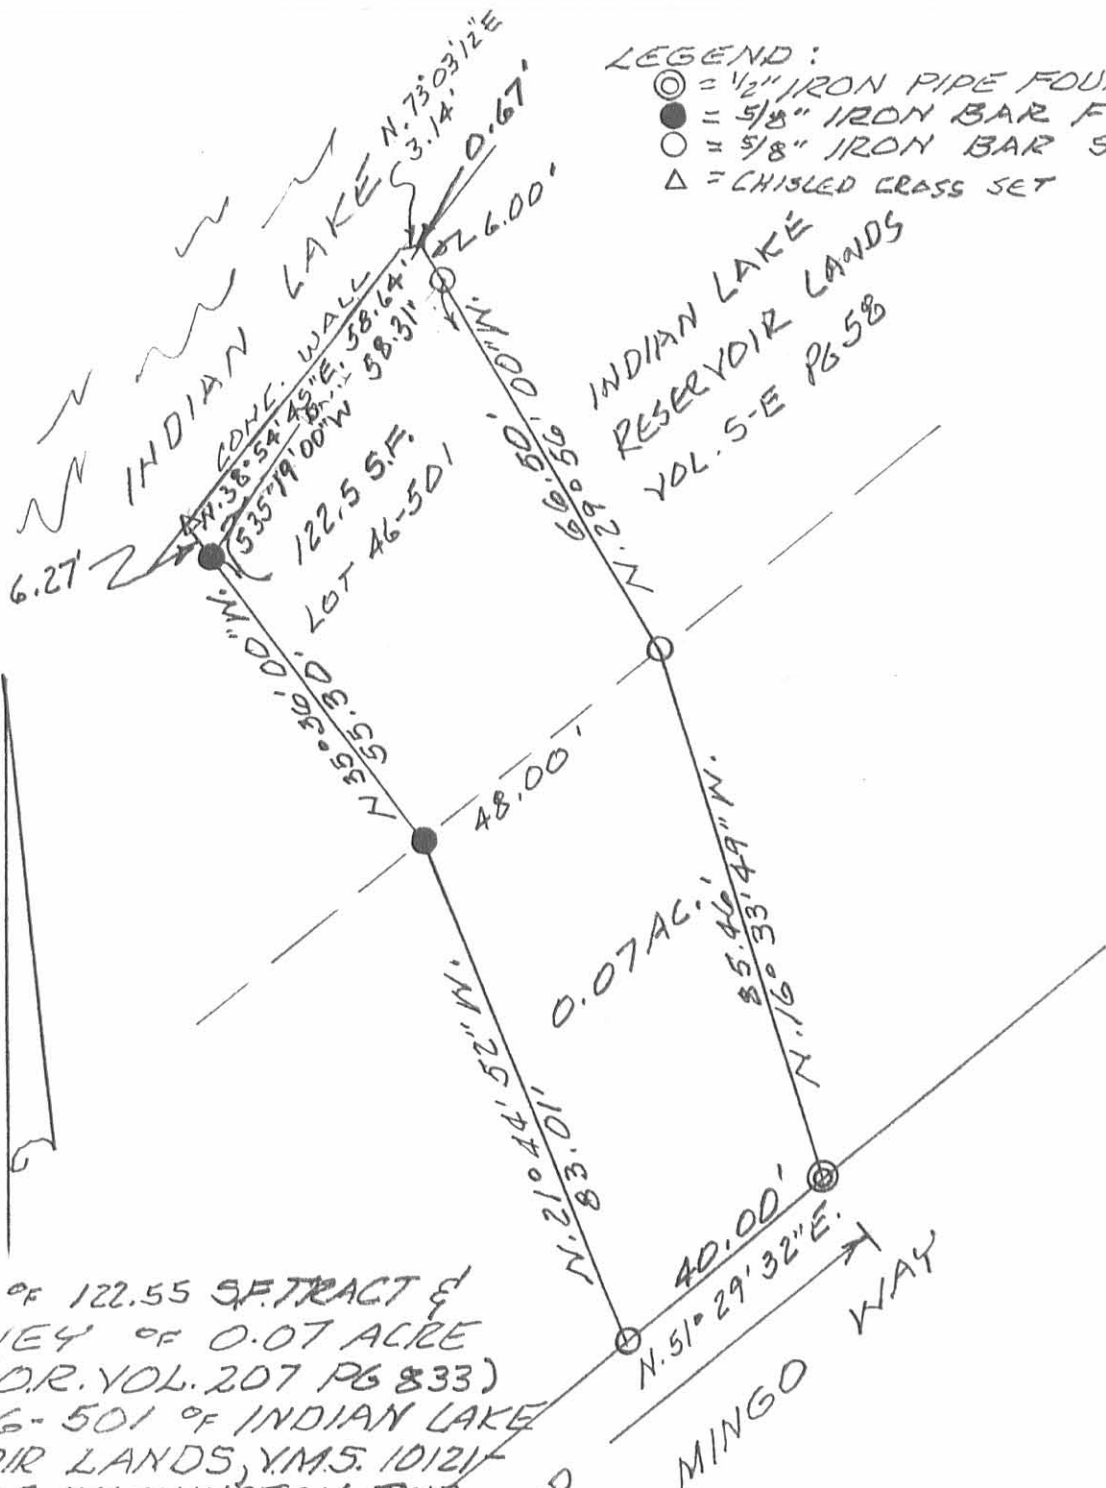 LEGEND:
◎ = 1/2" IRON PIPE
● = 5/8" IRON BAR
○ = 5/8" IRON BAR
△ = CHISLED CROSS SET
N.73°03'12"E
3.14'
0.67'
6.00'
INDIAN LAKE
CONC. WALL
N.38°54'45"E. 58.64'
58.31'
S35°19'00"W
6.27'
122.5 S.F.
LOT 46-501
INDIAN LAKE
RESERVOIR LANDS
VOL. 5-E PG 58
N.29°56'00"W.
66.50'
N 35°36'00"W.
55.30'
48.00'
0.07 AC.
N.21°44'52"W.
83.01'
85.46'
N.16°33'49"W.
40.00'
N.51°29'32"E.
MINGO WAY
OF 122.55 S.F. TRACT &
OF 0.07 ACRE
O.R. VOL. 207 PG 833)
6-501 OF INDIAN LAKE
LANDS, V.M.S. 10121-